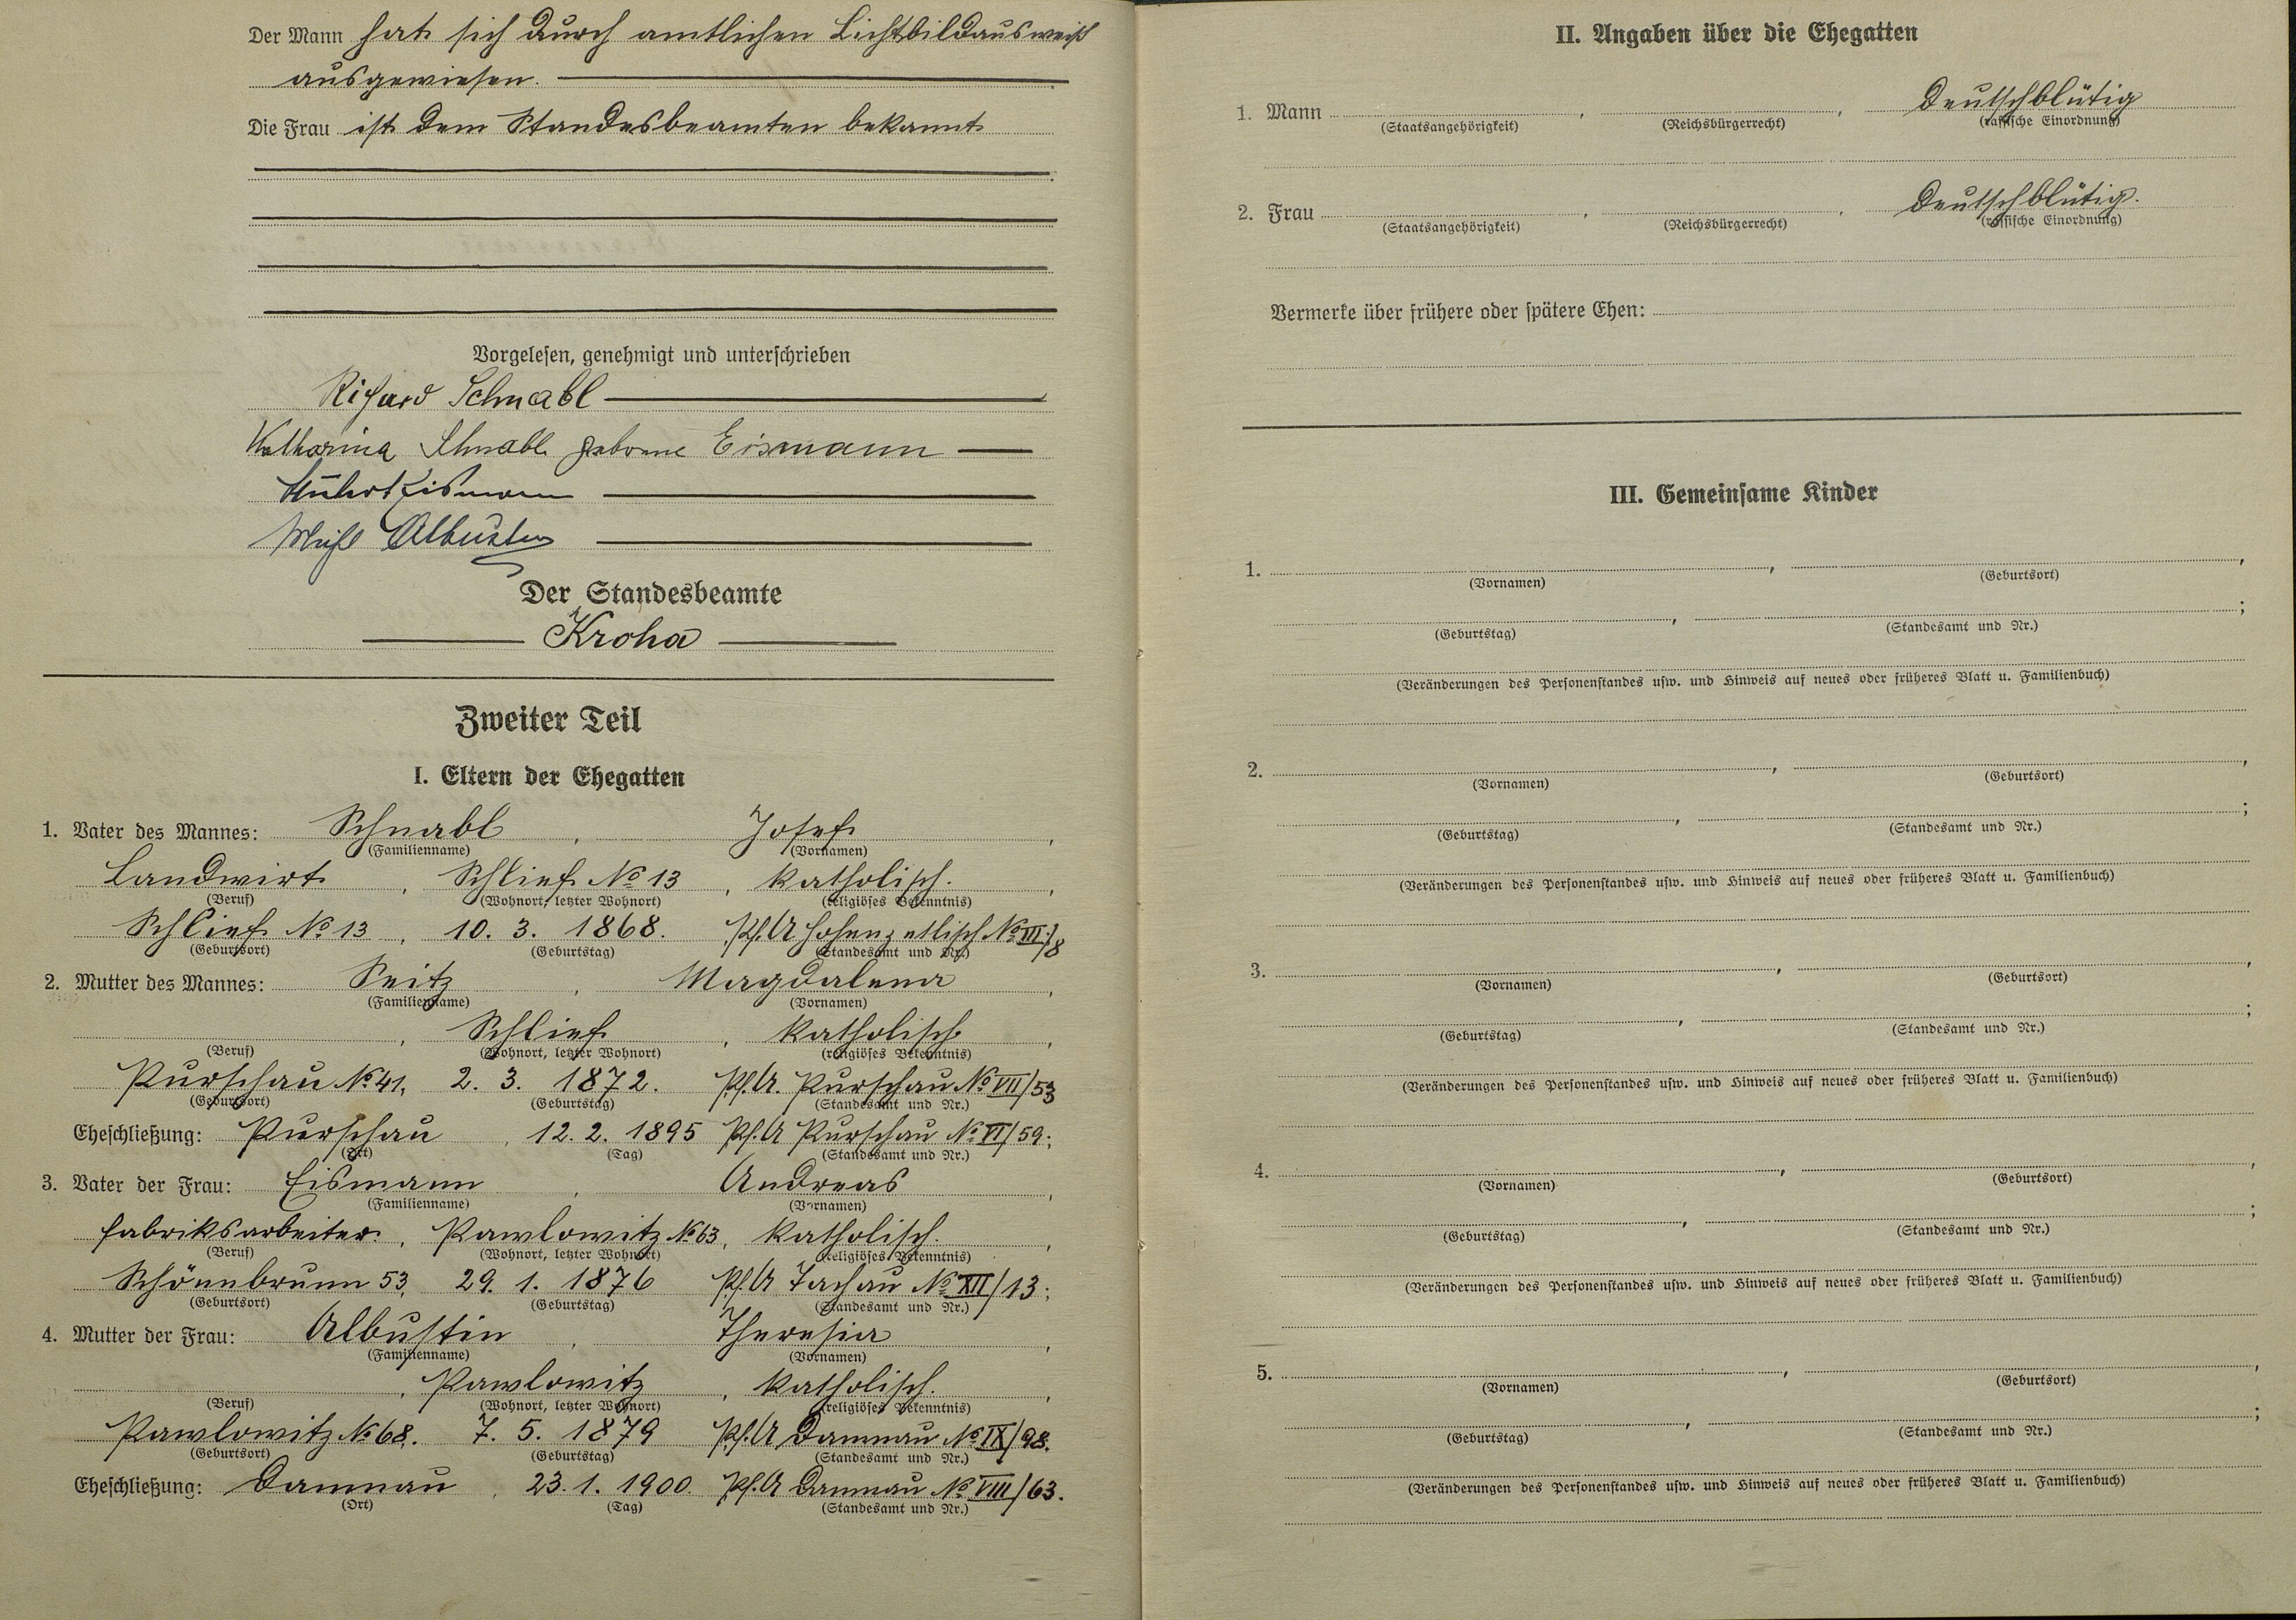 Der Mann hat sich durch amtlichen Lichtbildausweis
ausgewiesen.
Die Frau ist dem Standesbeamten bekannt
Vorgelesen, genehmigt und unterschrieben
Richard Schnabl
Katharina Schnabl geborene Eismann
Eismann
Albustin
Der Standesbeamte
Kroha
Zweiter Teil
I. Eltern der Ehegatten
1. Vater des Mannes: Schnabl, Josef,
(Familienname) (Vornamen)
Landwirt, Schlief No 13, katholisch.,
(Beruf) (Wohnort, letzter Wohnort) (religiöses Bekenntnis)
Schlief No 13, 10. 3. 1868. Pf. A Hohenzetlisch No III/8
(Geburtsort) (Geburtstag) (Standesamt und Nr.)
2. Mutter des Mannes: Seitz, Magdalena,
(Familienname) (Vornamen)
, Schlief, katholisch,
(Beruf) (Wohnort, letzter Wohnort) (religiöses Bekenntnis)
Purschau No 41, 2. 3. 1872. Pf. A. Purschau No VII/53
(Geburtsort) (Geburtstag) (Standesamt und Nr.)
Eheschließung: Purschau, 12. 2. 1895 Pf. A Purschau No VI/59;
(Ort) (Tag) (Standesamt und Nr.)
3. Vater der Frau: Eismann, Andreas,
(Familienname) (Vornamen)
Fabriksarbeiter, Pawlowitz No 63, katholisch.,
(Beruf) (Wohnort, letzter Wohnort) (religiöses Bekenntnis)
Schönnbrunn 53, 29. 1. 1876 Pf. A Tachau No XII/13;
(Geburtsort) (Geburtstag) (Standesamt und Nr.)
4. Mutter der Frau: Albustin, Theresia,
(Familienname) (Vornamen)
, Pawlowitz, katholisch.,
(Beruf) (Wohnort, letzter Wohnort) (religiöses Bekenntnis)
Pawlowitz No 68. 7. 5. 1879 Pf. A Damnau No IX/98.
(Geburtsort) (Geburtstag) (Standesamt und Nr.)
Eheschließung: Damnau, 23. 1. 1900. Pf. A Damnau No VIII/63.
(Ort) (Tag) (Standesamt und Nr.)
II. Angaben über die Ehegatten
1. Mann , , Deutschblütig
(Staatsangehörigkeit) (Reichsbürgerrecht) (rassische Einordnung)
2. Frau , , Deutschblütig.
(Staatsangehörigkeit) (Reichsbürgerrecht) (rassische Einordnung)
Vermerke über frühere oder spätere Ehen:
III. Gemeinsame Kinder
1. , ,
(Vornamen) (Geburtsort)
, ;
(Geburtstag) (Standesamt und Nr.)
(Veränderungen des Personenstandes usw. und Hinweis auf neues oder früheres Blatt u. Familienbuch)
2. , ,
(Vornamen) (Geburtsort)
, ;
(Geburtstag) (Standesamt und Nr.)
(Veränderungen des Personenstandes usw. und Hinweis auf neues oder früheres Blatt u. Familienbuch)
3. , ,
(Vornamen) (Geburtsort)
, ;
(Geburtstag) (Standesamt und Nr.)
(Veränderungen des Personenstandes usw. und Hinweis auf neues oder früheres Blatt u. Familienbuch)
4. , ,
(Vornamen) (Geburtsort)
, ;
(Geburtstag) (Standesamt und Nr.)
(Veränderungen des Personenstandes usw. und Hinweis auf neues oder früheres Blatt u. Familienbuch)
5. , ,
(Vornamen) (Geburtsort)
, ;
(Geburtstag) (Standesamt und Nr.)
(Veränderungen des Personenstandes usw. und Hinweis auf neues oder früheres Blatt u. Familienbuch)